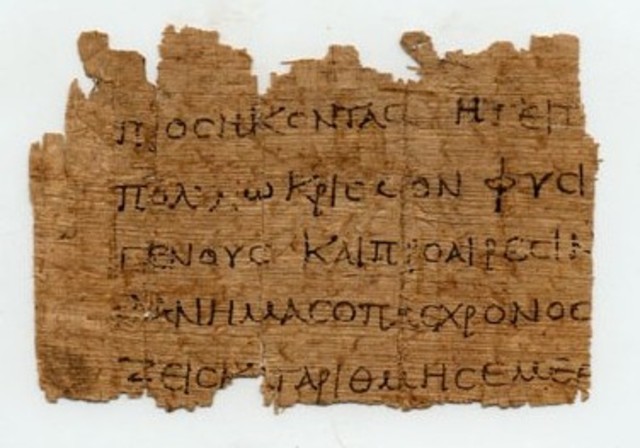 ΠΡΟϹΗΚΟΝΤΑϹ ΗΓΕΠ
ΠΟΛΛΩ ΚΡΙϹϹΟΝ ΦΥϹΙ
ΓΕΝΟΥϹ ΚΑΙ ΠΡΟΑΙΡΕϹΙΝ
ΑΝ ΗΜΑϹ Ο ΠΑϹ ΧΡΟΝΟϹ
ΑΡΙΘΜΗϹΕ